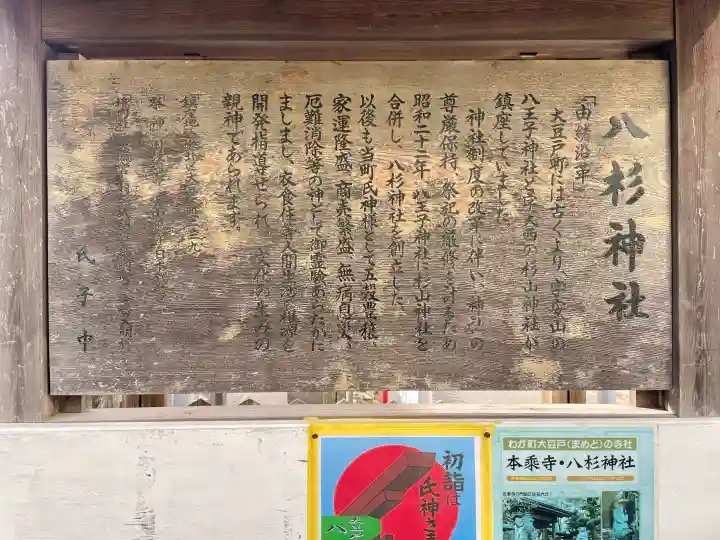 八杉神社
「由緒沿革
大豆戸町には古くより、字安山の
八王子神社と字大西の杉山神社が
鎮座していました。
神社制度の改革に伴い、神社の
尊厳保持、祭祀の厳修を計るため
昭和三十二年、八王子神社に杉山神社を
合併し、八杉神社を創立した。
以後も当町氏神様として五穀豊穣、
家運隆盛、商売繁盛、無病息災、
厄難消除等の神として御霊験あらたかに
ましまし、衣食住等人間生活の根源を
開発指導せられ、文化の生みの
親神であられます。
氏子中
初詣は
氏神さま
大豆戸
八
わが町大豆戸(まめど)の寺社
本乗寺・八杉神社